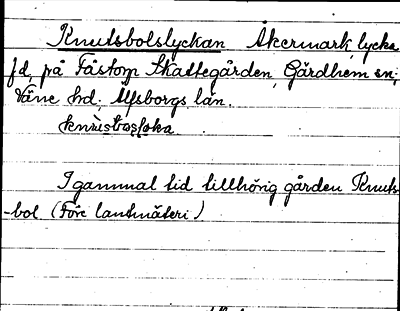 Knutsbolslyckan Åkermark, lycka
fd, på Fåstorp Skattegården, Gärdhem sn;
Väne hd. Älfsborgs län.

I gammal tid tillhörig gården Knuts-
-bol (Före lantmäteri)